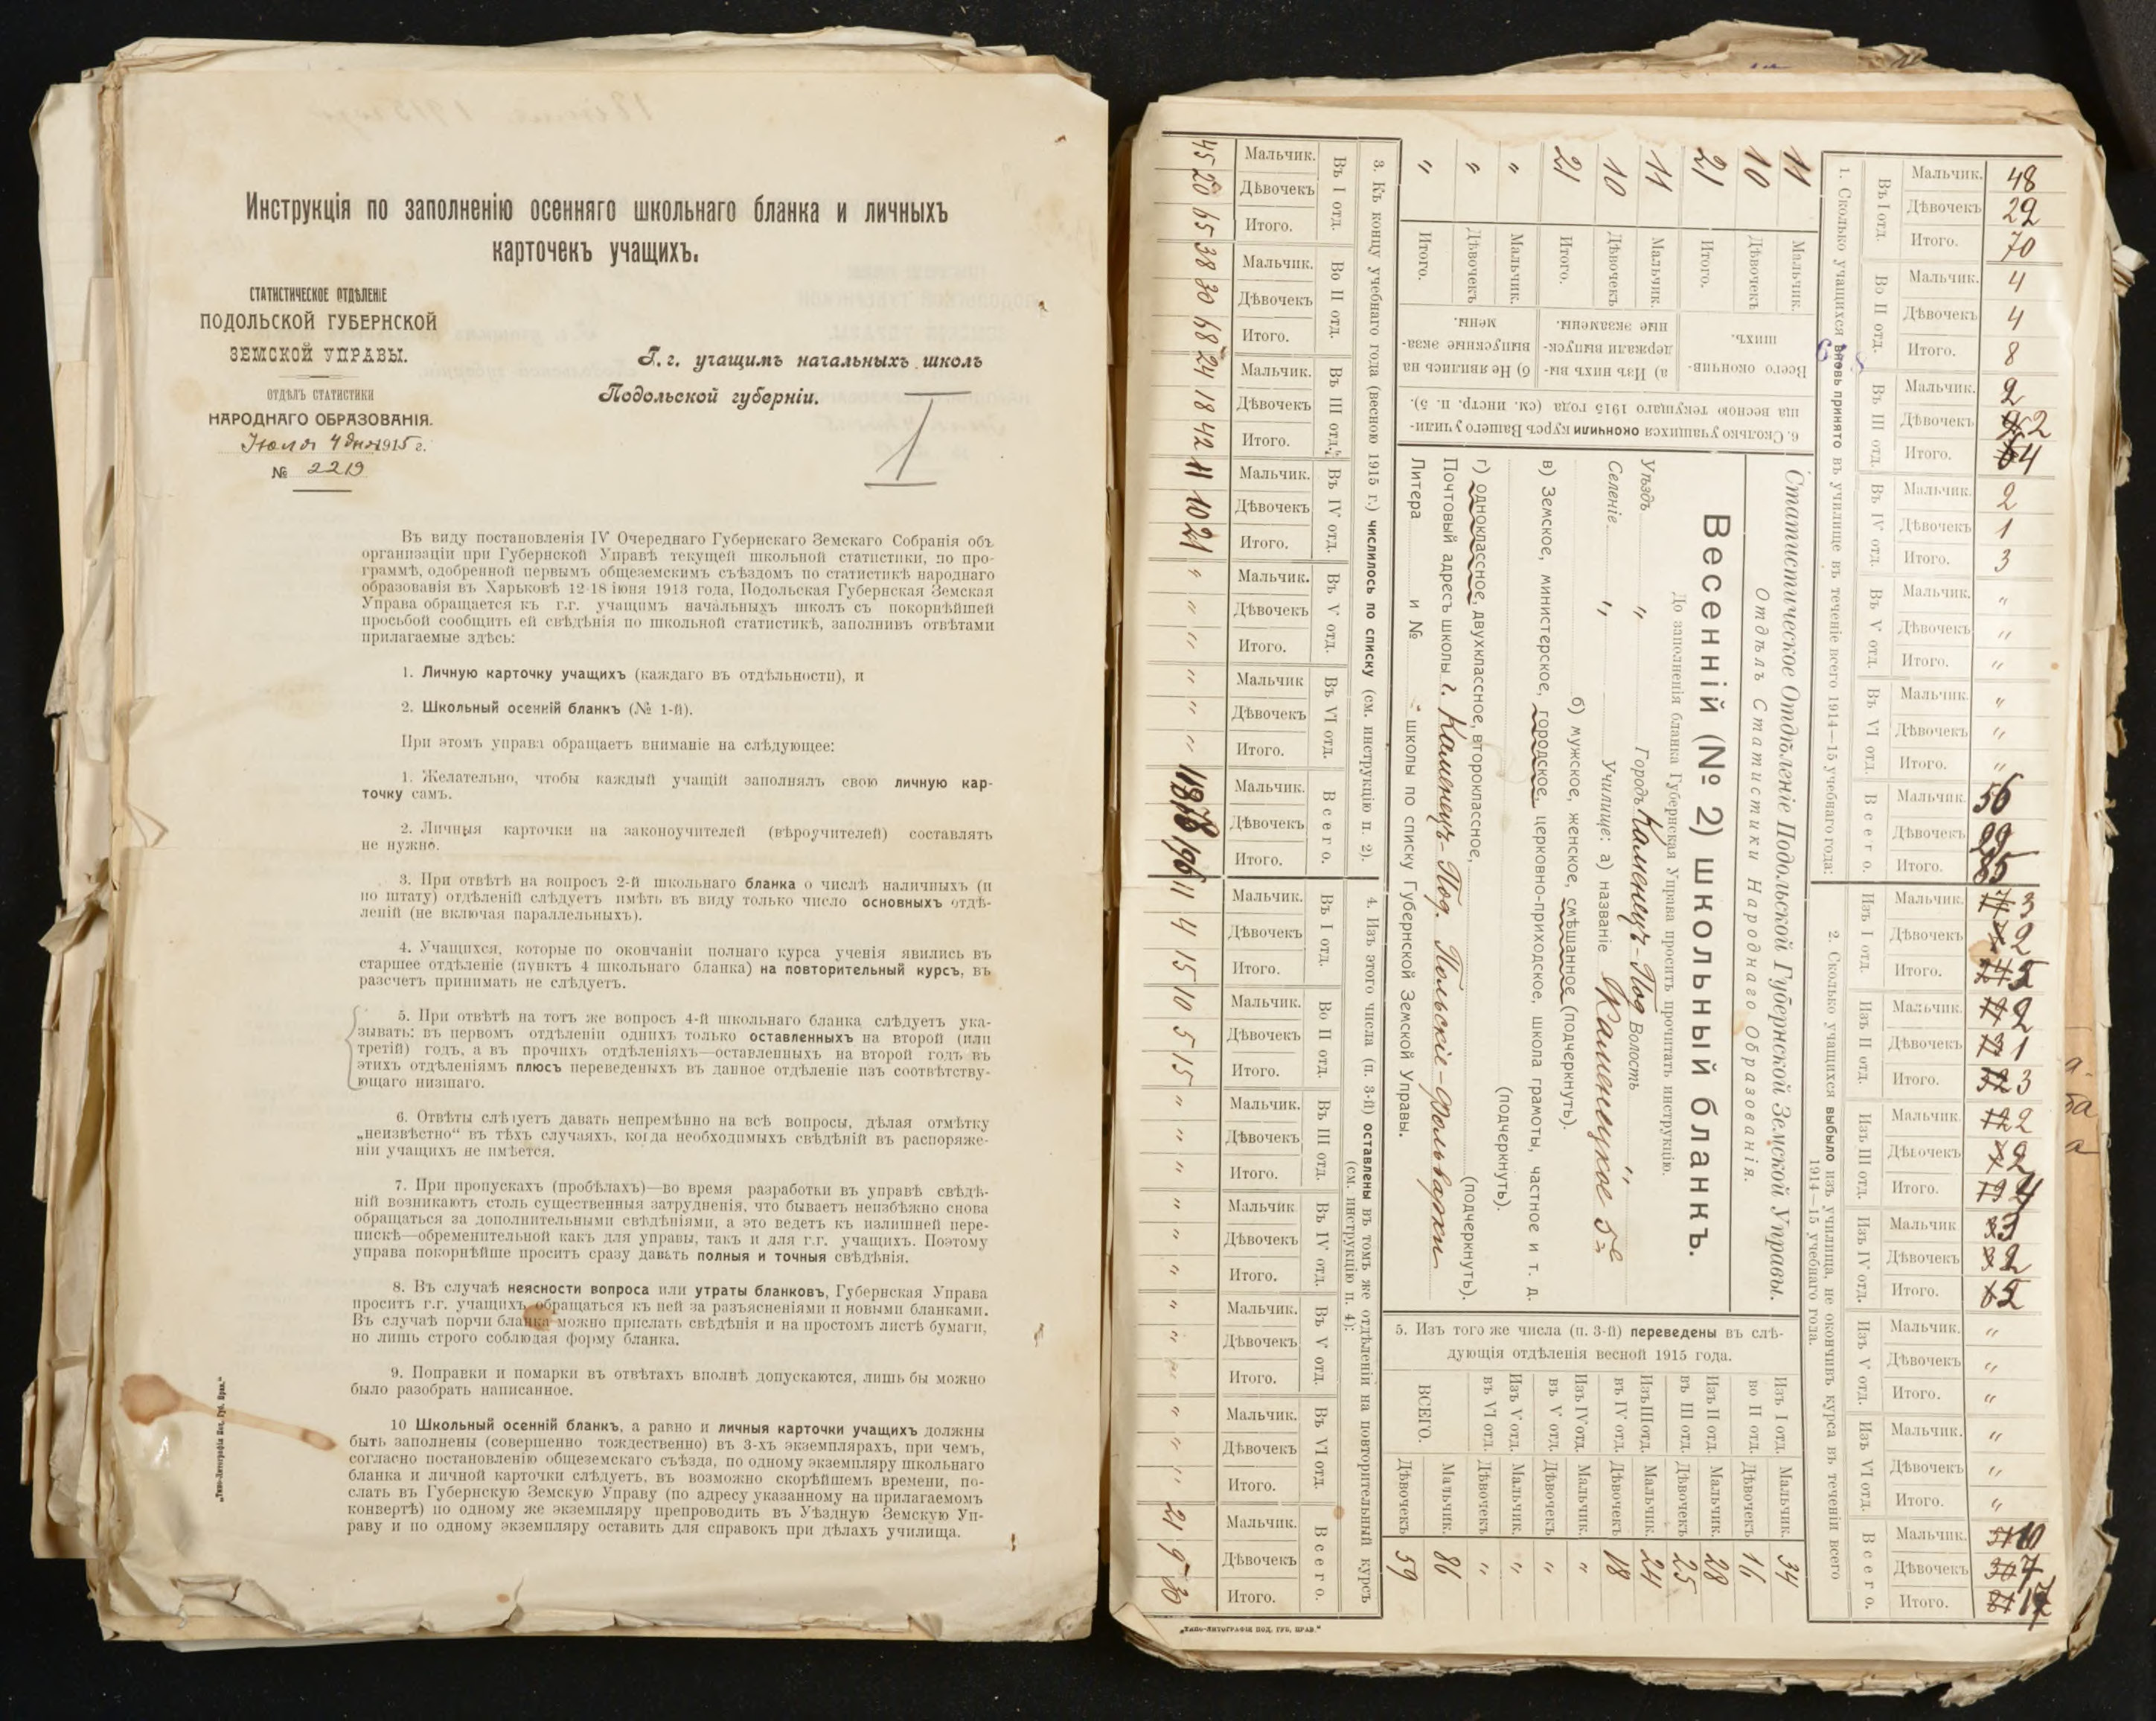 Инструкція по заполненію осенняго школьнаго бланка и личныхъ
карточекъ учащихъ.
СТАТИСТИЧЕСКОЕ ОТДѢЛЕНІЕ
ПОДОЛЬСКОЙ ГУБЕРНСКОЙ
ЗЕМСКОЙ УПРАВЫ.
ОТДѢЛЪ СТАТИСТИКИ
НАРОДНАГО ОБРАЗОВАНІЯ.
Іюля 4 дня 1915 г.
№ 2219
Г. г. учащимъ начальныхъ школъ
Подольской губерніи.
1
Въ виду постановленія IV Очереднаго Губернскаго Земскаго Собранія объ
организаціи при Губернской Управѣ текущей школьной статистики, по про-
граммѣ, одобренной первымъ общеземскимъ съѣздомъ по статистикѣ народнаго
образованія въ Харьковѣ 12-18 іюня 1913 года, Подольская Губернская Земская
Управа обращается къ г.г. учащимъ начальныхъ школъ съ покорнѣйшей
просьбой сообщить ей свѣдѣнія по школьной статистикѣ, заполнивъ отвѣтами
прилагаемые здѣсь:
1. Личную карточку учащихъ (каждаго въ отдѣльности), и
2. Школьный осенній бланкъ (№ 1-й).
При этомъ управа обращаетъ вниманіе на слѣдующее:
1. Желательно, чтобы каждый учащій заполнялъ свою личную кар-
точку самъ.
2. Личныя карточки на законоучителей (вѣроучителей) составлять
не нужно.
3. При отвѣтѣ на вопросъ 2-й школьнаго бланка о числѣ наличныхъ (и
по штату) отдѣленій слѣдуетъ имѣть въ виду только число основныхъ отдѣ-
леній (не включая параллельныхъ).
4. Учащихся, которые по окончаніи полнаго курса ученія явились въ
старшее отдѣленіе (пунктъ 4 школьнаго бланка) на повторительный курсъ, въ
разсчетъ принимать не слѣдуетъ.
5. При отвѣтѣ на тотъ же вопросъ 4-й школьнаго бланка слѣдуетъ ука-
зывать: въ первомъ отдѣленіи однихъ только оставленныхъ на второй (или
третій) годъ, а въ прочихъ отдѣленіяхъ—оставленныхъ на второй годъ въ
этихъ отдѣленіямъ плюсъ переведеныхъ въ данное отдѣленіе изъ соотвѣтству-
ющаго низшаго.
6. Отвѣты слѣдуетъ давать непремѣнно на всѣ вопросы, дѣлая отмѣтку
„неизвѣстно“ въ тѣхъ случаяхъ, когда необходимыхъ свѣдѣній въ распоряже-
ніи учащихъ не имѣется.
7. При пропускахъ (пробѣлахъ)—во время разработки въ управѣ свѣдѣ-
ній возникаютъ столь существенныя затрудненія, что бываетъ неизбѣжно снова
обращаться за дополнительными свѣдѣніями, а это ведетъ къ излишней пере-
пискѣ—обременительной какъ для управы, такъ и для г.г. учащихъ. Поэтому
управа покорнѣйше проситъ сразу давать полныя и точныя свѣдѣнія.
8. Въ случаѣ неясности вопроса или утраты бланковъ, Губернская Управа
проситъ г.г. учащихъ обращаться къ ней за разъясненіями и новыми бланками.
Въ случаѣ порчи бланка можно прислать свѣдѣнія и на простомъ листѣ бумаги,
но лишь строго соблюдая форму бланка.
9. Поправки и помарки въ отвѣтахъ вполнѣ допускаются, лишь бы можно
было разобрать написанное.
10 Школьный осенній бланкъ, а равно и личныя карточки учащихъ должны
быть заполнены (совершенно тождественно) въ 3-хъ экземплярахъ, при чемъ,
согласно постановленію общеземскаго съѣзда, по одному экземпляру школьнаго
бланка и личной карточки слѣдуетъ, въ возможно скорѣйшемъ времени, по-
слать въ Губернскую Земскую Управу (по адресу указанному на прилагаемомъ
конвертѣ) по одному же экземпляру препроводить въ Уѣздную Земскую Уп-
раву и по одному экземпляру оставить для справокъ при дѣлахъ училища.
„Типо-Литографія Под. Губ. Прав.“
Статистическое Отдѣленіе Подольской Губернской Земской Управы.
Отдѣлъ Статистики Народнаго Образованія.
Весенній (№ 2) школьный бланкъ.
До заполненія бланка Губернская Управа проситъ прочитать инструкцію.
Уѣздъ „ Городъ Каменецъ-Под Волость „
Селеніе „ Училище: а) названіе Каменецкое 5е
б) мужское, женское, смѣшанное (подчеркнуть).
в) Земское, министерское, городское, церковно-приходское, школа грамоты, частное и т. д.
(подчеркнуть).
г) одноклассное, двухклассное, второклассное, (подчеркнуть).
Почтовый адресъ школы г. Каменецъ-Под. Польскіе-Фольварки
Литера и № „ школы по списку Губернской Земской Управы.
1. Сколько учащихся вновь принято въ училище въ теченіе всего 1914—15 учебнаго года:
Въ I отд. Мальчик. 48
Дѣвочекъ 22
Итого. 70
Во II отд. Мальчик. 4
Дѣвочекъ 4
Итого. 8
Въ III отд. Мальчик. 2
Дѣвочекъ 2
Итого. 4
Въ IV отд. Мальчик. 2
Дѣвочекъ 1
Итого. 3
Въ V отд. Мальчик. „
Дѣвочекъ „
Итого. „
Въ VI отд. Мальчик. „
Дѣвочекъ „
Итого. „
Всего. Мальчик. 56
Дѣвочекъ 29
Итого. 85
2. Сколько учащихся выбыло изъ училища, не окончивъ курса въ теченіи всего
1914—15 учебнаго года.
Изъ I отд. Мальчик. 3
Дѣвочекъ 2
Итого. 5
Изъ II отд. Мальчик. 2
Дѣвочекъ 1
Итого. 3
Изъ III отд. Мальчик. 2
Дѣвочекъ 2
Итого. 4
Изъ IV отд. Мальчик 3
Дѣвочекъ 2
Итого. 5
Изъ V отд. Мальчик. „
Дѣвочекъ „
Итого. „
Изъ VI отд. Мальчик. „
Дѣвочекъ „
Итого. „
Всего. Мальчик. 10
Дѣвочекъ 7
Итого. 17
3. Къ концу учебнаго года (весною 1915 г.) числилось по списку (см. инструкцію п. 2).
Въ I отд. Мальчик. 45
Дѣвочекъ 20
Итого. 65
Во II отд. Мальчик. 38
Дѣвочекъ 30
Итого. 68
Въ III отд. Мальчик. 24
Дѣвочекъ 18
Итого. 42
Въ IV отд. Мальчик. 11
Дѣвочекъ 10
Итого. 21
Въ V отд. Мальчик. „
Дѣвочекъ „
Итого. „
Въ VI отд. Мальчик „
Дѣвочекъ „
Итого. „
Всего. Мальчик. 118
Дѣвочекъ 78
Итого. 196
4. Изъ этого числа (п. 3-й) оставлены въ томъ же отдѣленіи на повторительный курсъ
(см. инструкцію п. 4):
Въ I отд. Мальчик. 11
Дѣвочекъ 4
Итого. 15
Во II отд. Мальчик. 10
Дѣвочекъ 5
Итого. 15
Въ III отд. Мальчик. „
Дѣвочекъ „
Итого. „
Въ IV отд. Мальчик „
Дѣвочекъ „
Итого. „
Въ V отд. Мальчик. „
Дѣвочекъ „
Итого. „
Въ VI отд. Мальчик. „
Дѣвочекъ „
Итого. „
Всего. Мальчик. 21
Дѣвочекъ 9
Итого. 30
5. Изъ того же числа (п. 3-й) переведены въ слѣ-
дующія отдѣленія весной 1915 года.
Изъ I отд. во II отд. Мальчик. 34
Дѣвочекъ 16
Изъ II отд. въ III отд. Мальчик. 28
Дѣвочекъ 25
Изъ III отд. въ IV отд. Мальчик. 24
Дѣвочекъ 18
Изъ IV отд. въ V отд. Мальчик. „
Дѣвочекъ „
Изъ V отд. въ VI отд. Мальчик. „
Дѣвочекъ „
ВСЕГО. Мальчик. 86
Дѣвочекъ 59
6. Сколько учащихся окончили курсъ Вашего учили-
ща весною текущаго 1915 года (см. инстр. п. 5).
Всего окончив-
шихъ.
Мальчик. 11
Дѣвочекъ 10
Итого. 21
а) Изъ нихъ вы-
держали выпуск-
ные экзамены.
Мальчик. 11
Дѣвочекъ 10
Итого. 21
б) Не явились на
выпускные экза-
мены.
Мальчик. „
Дѣвочекъ „
Итого. „
„ТИПО-ЛИТОГРАФІЯ ПОД. ГУБ. ПРАВ.“